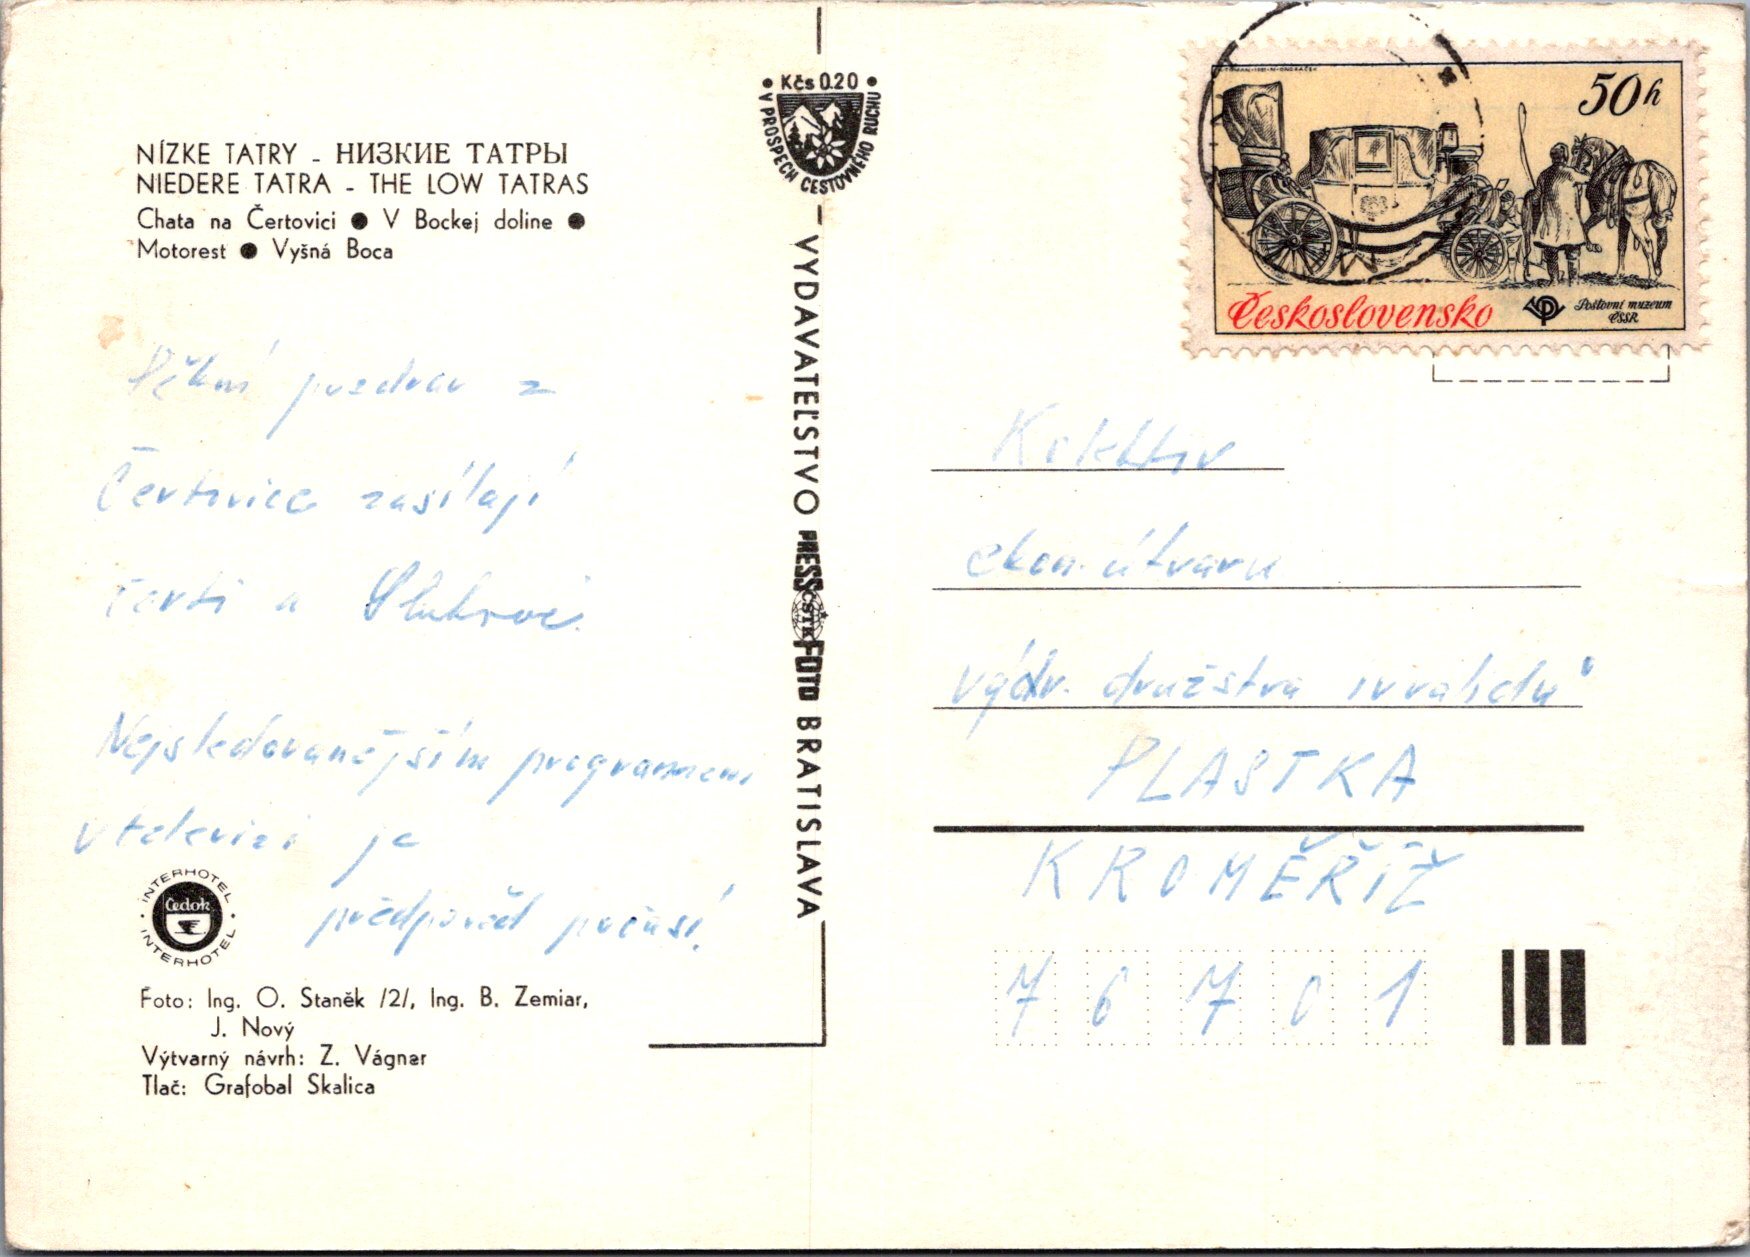 NÍZKE TATRY - НИЗКИЕ ТАТРЫ
NIEDERE TATRA - THE LOW TATRAS
Chata na Čertovici ● V Bockej doline ●
Motorest ● Vyšná Boca
Pěkný pozdrav z
Čertovice zasílají
čerti a
Nejsledovanějším programem
v televizi je
předpověď počasí.
INTERHOTEL
Čedok
INTERHOTEL
Foto: Ing. O. Staněk /2/, Ing. B. Zemiar,
J. Nový
Výtvarný návrh: Z. Vágner
Tlač: Grafobal Skalica
• Kčs 0.20 •
V PROSPECH CESTOVNÉHO RUCHU
VYDAVATEĽSTVO PRESSFOTO BRATISLAVA
ČSTK
50h
Československo
Poštovní muzeum
ČSSR
Kolektiv
ekon. útvaru
výdr. družstva invalidů
PLASTKA
KROMĚŘÍŽ
76701